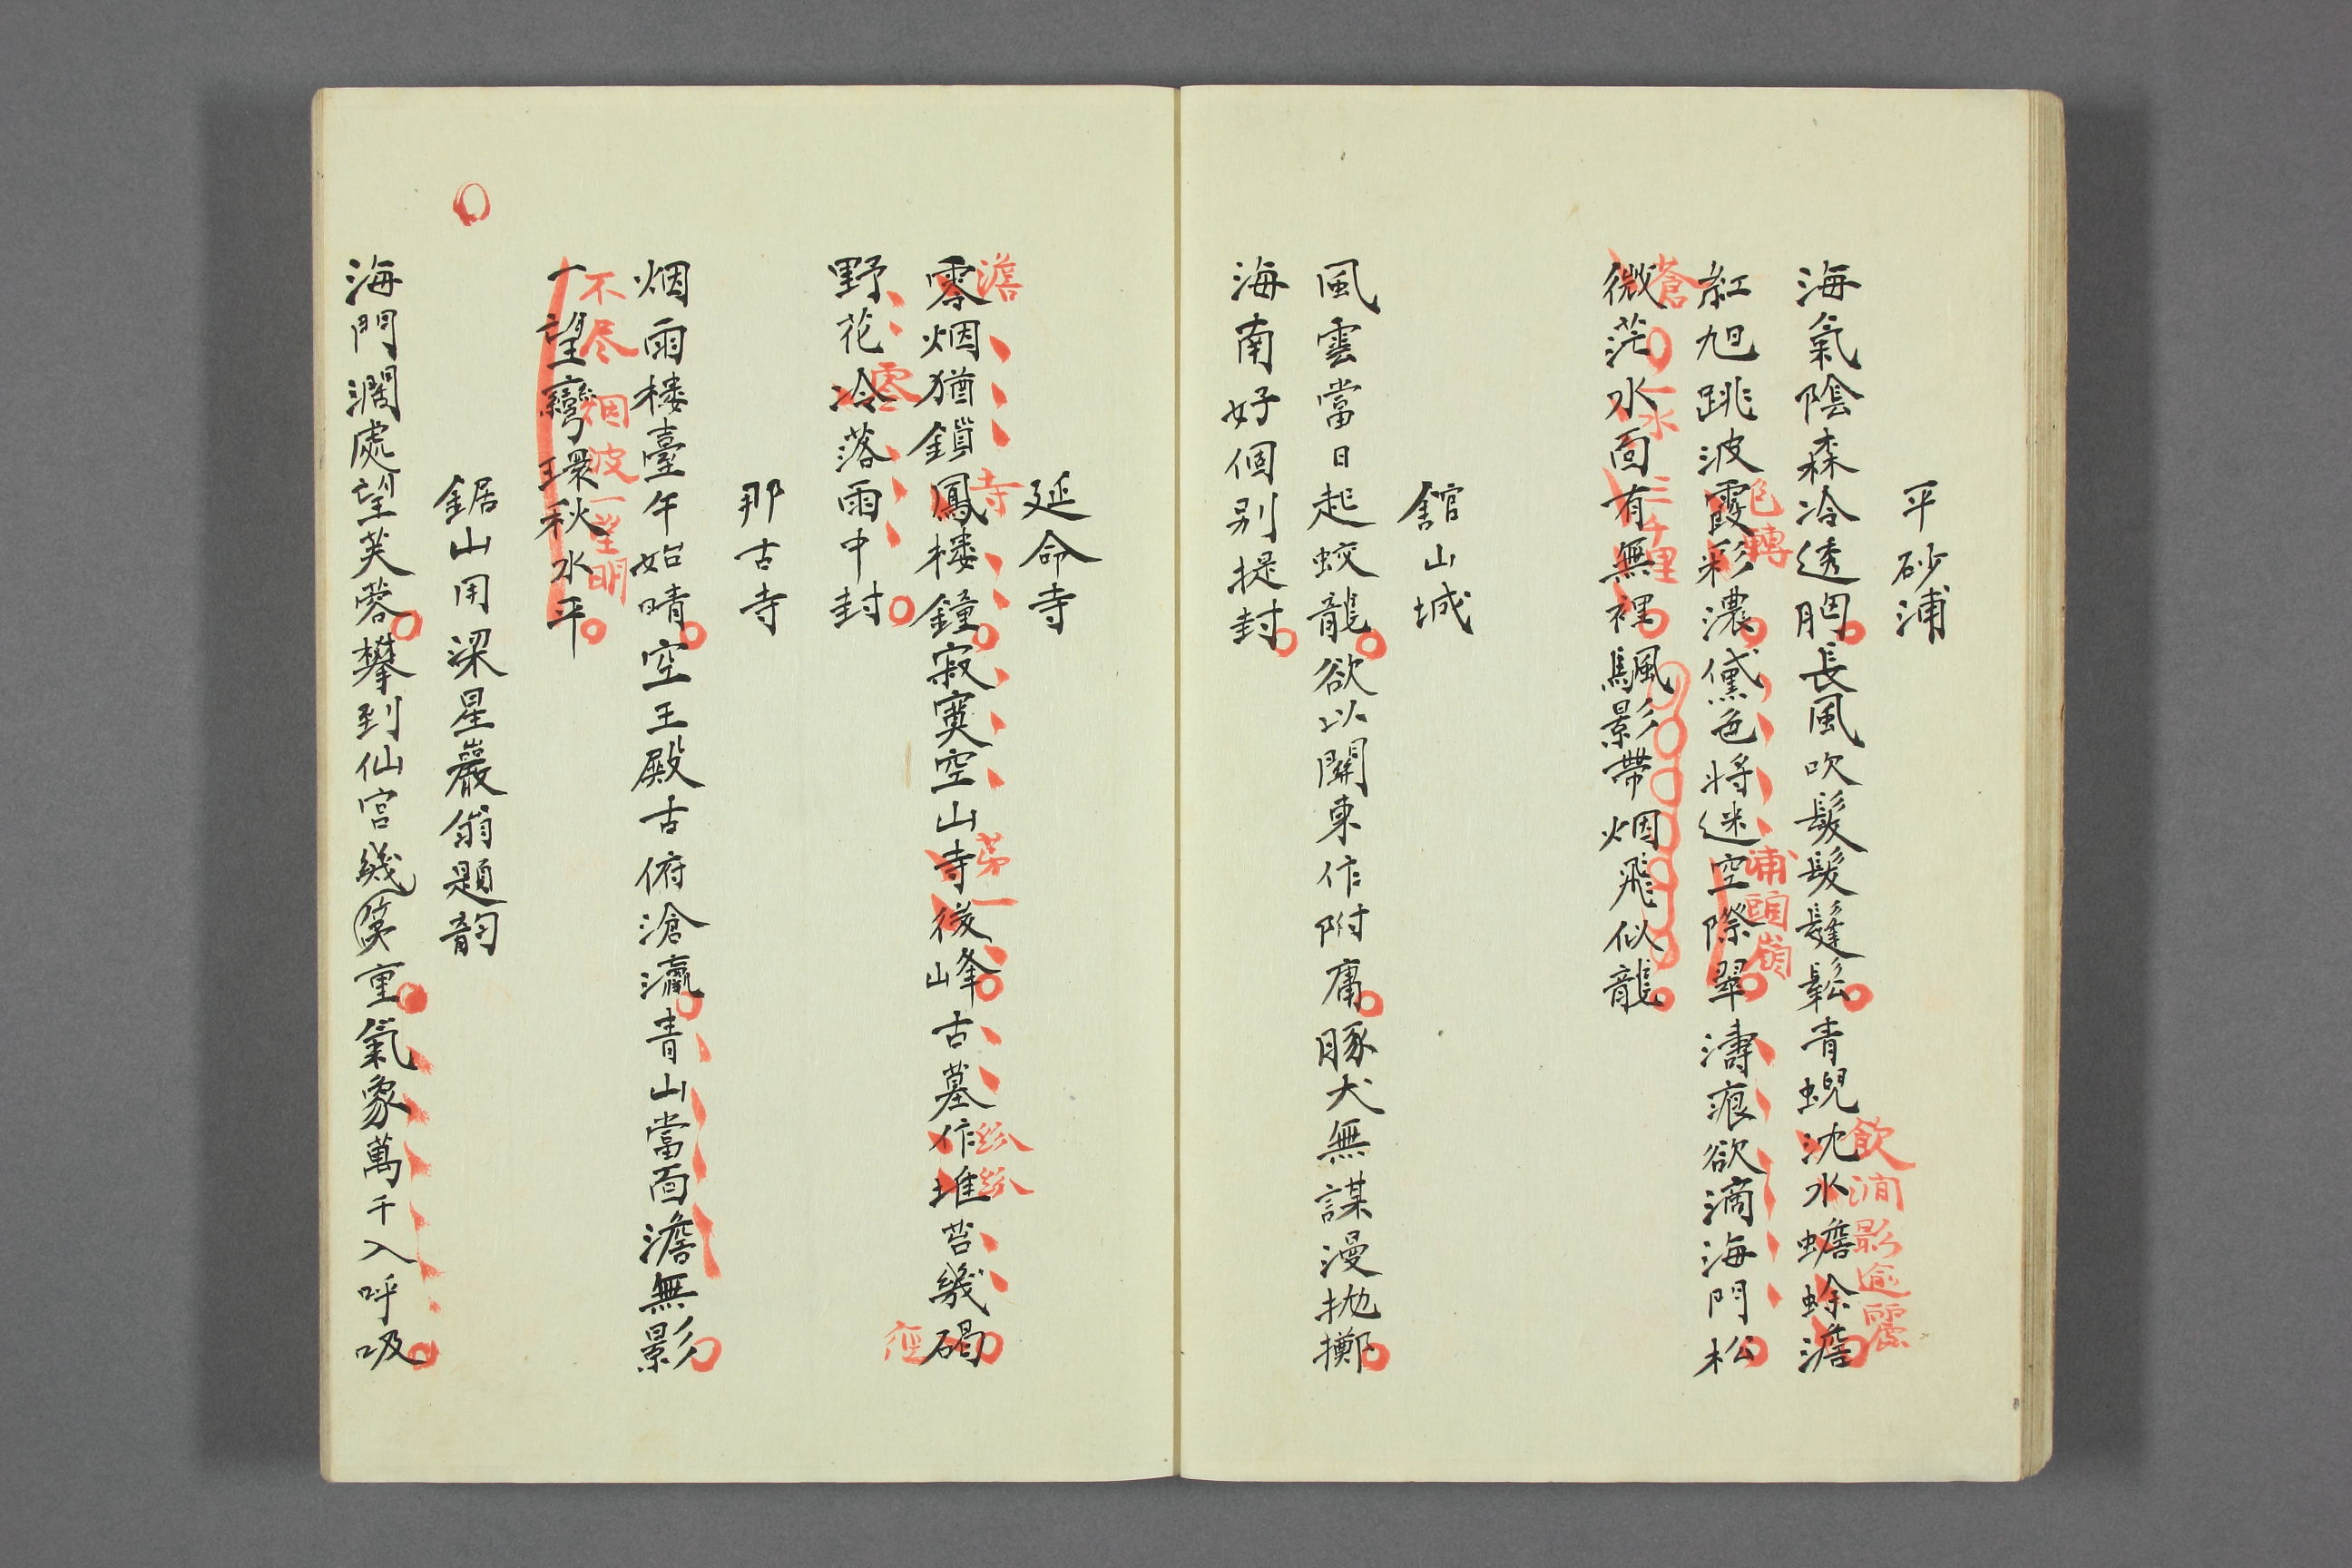 平砂浦
海氣陰森冷透胸長風吹髮髮鬔鬆青蜺沈水蟾蜍澹
飲澗影
紅旭跳波霞彩濃黛色将迷空際翠濤痕欲滴海門松
色轉
浦頭嵐
微茫水面有無裡颿影帶烟飛似龍
蒼
一水三千里
舘山城
風雲當日起蛟龍欲以關東作附庸豚犬無謀漫抛擲
海南好個別提封
延命寺
零烟猶鎖鳳樓鐘寂寞空山寺後峰古墓作堆苔幾碣
澹
寺
第一
纍纍
野花冷落雨中封
零
那古寺
烟雨楼臺午始晴空王殿古俯滄瀛青山當面澹無影
一望彎環秋水平
不尽烟波一望明
鋸山用梁星巖翁題韵
海門濶處望芙蓉攀到仙宮幾重氣象萬千入呼吸